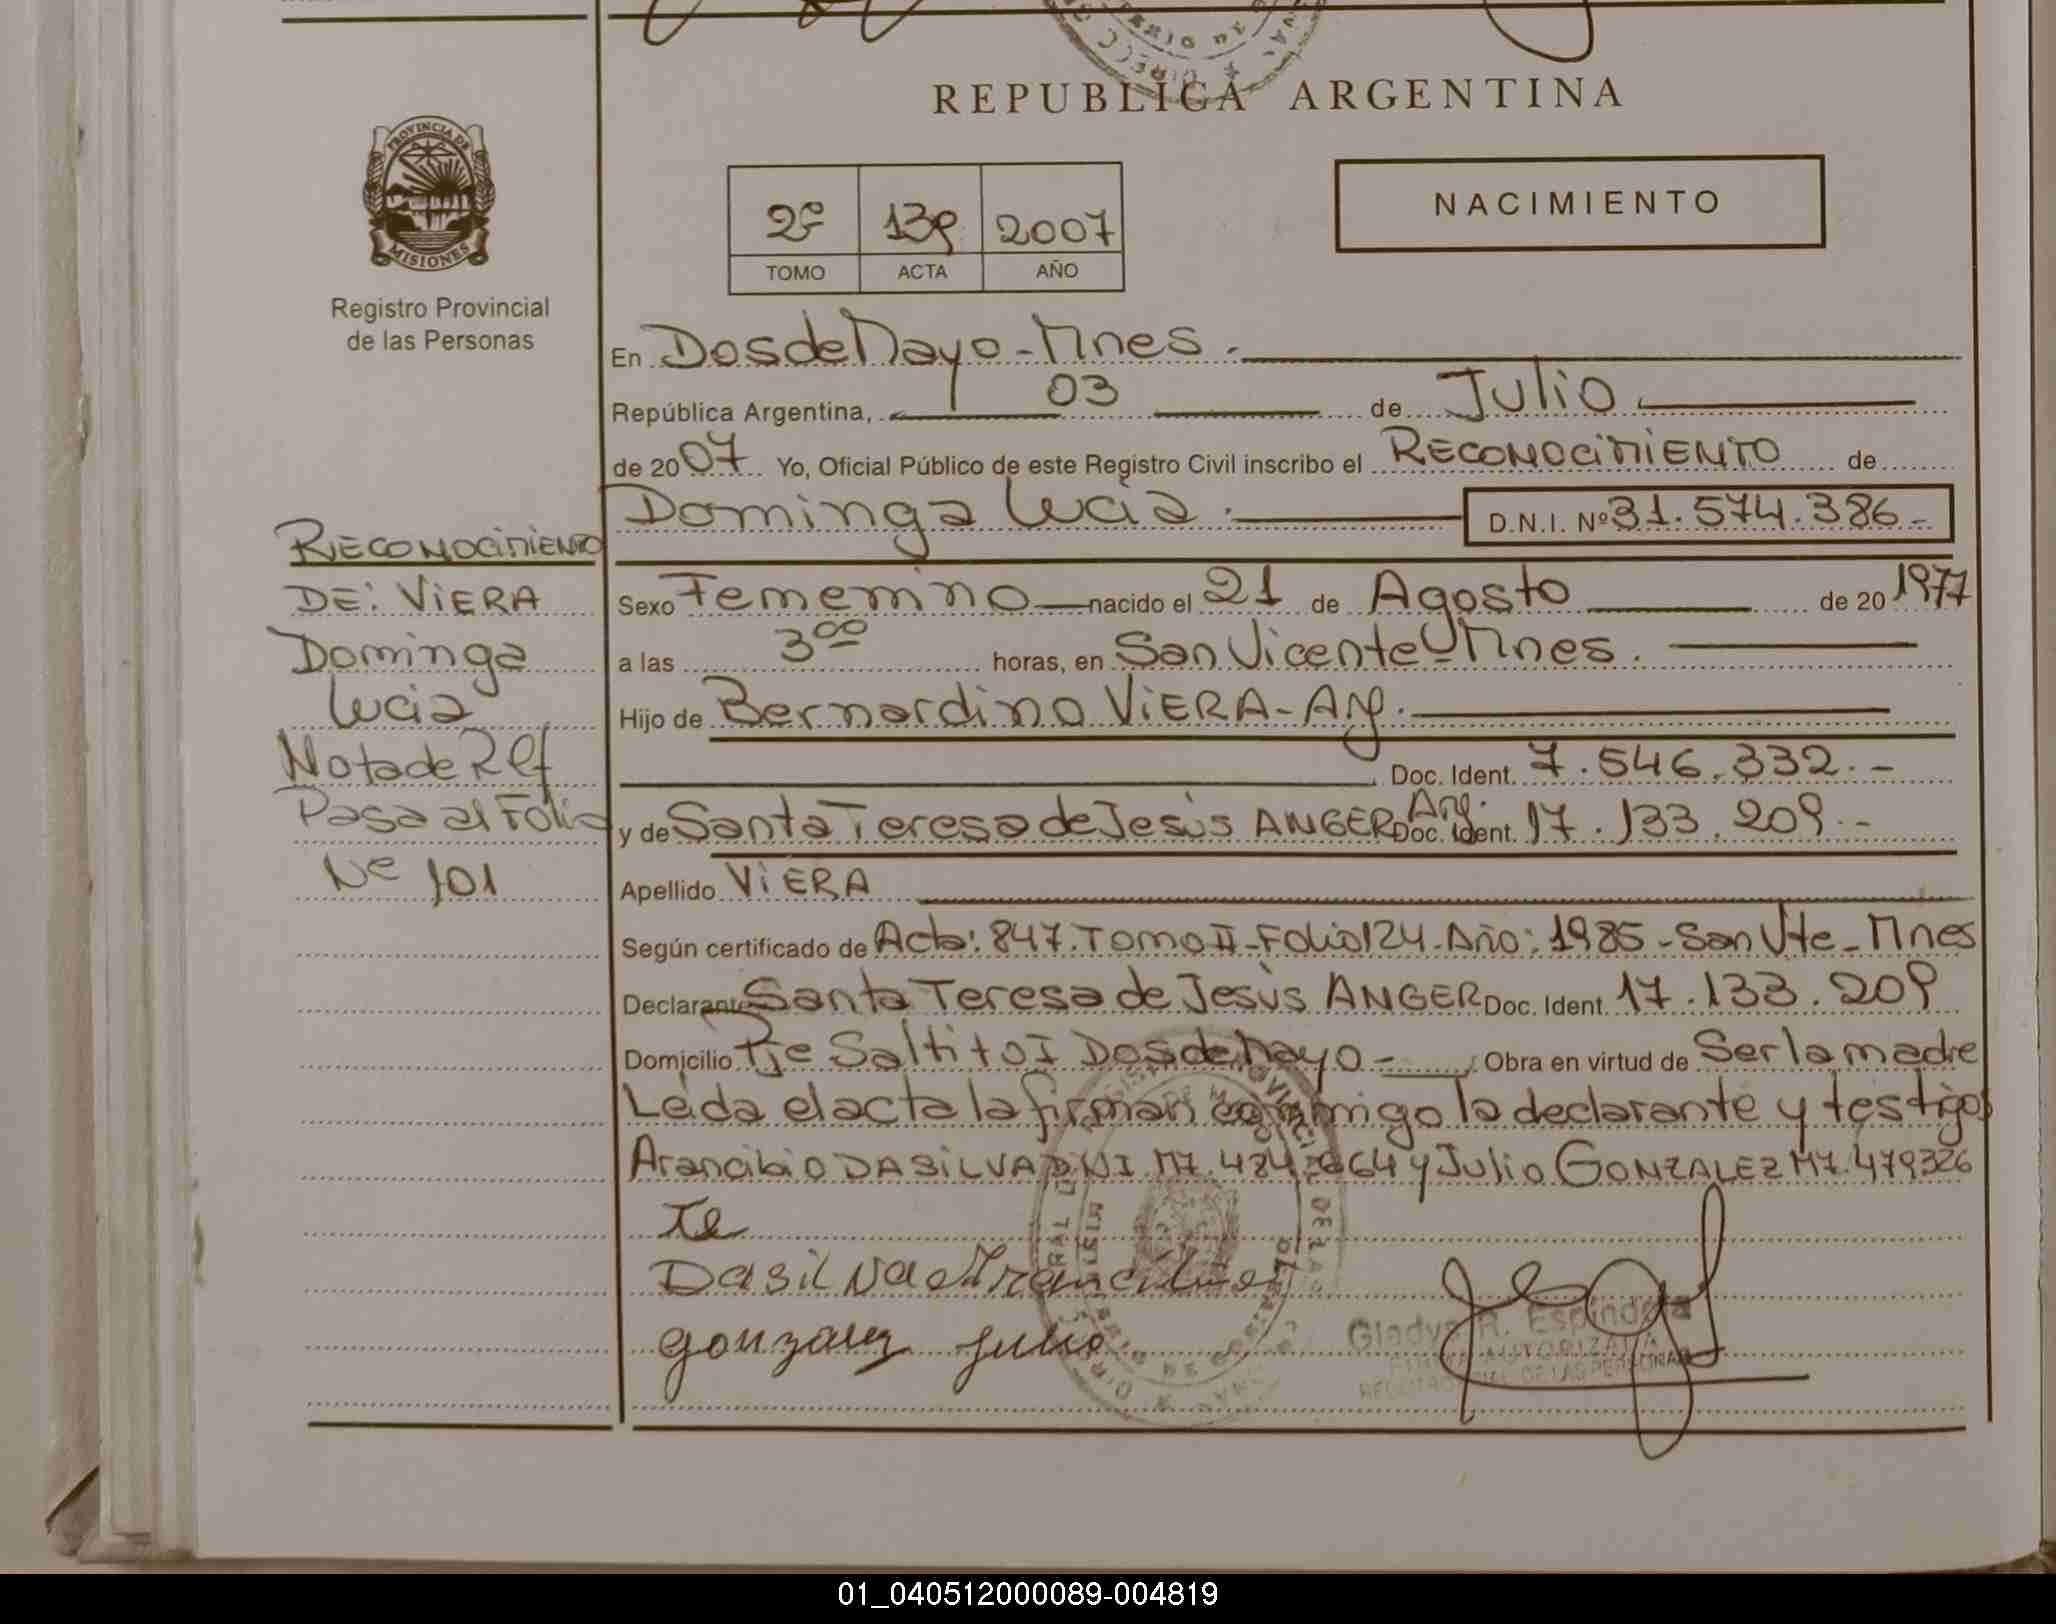 REPUBLICA ARGENTINA
PROVINCIA DE
MISIONES
Registro Provincial
de las Personas
2º 139 2007
TOMO ACTA AÑO
NACIMIENTO
En Dos de Mayo - Mnes.
República Argentina, 03 de Julio
de 2007 Yo, Oficial Público de este Registro Civil inscribo el RECONOCIMIENTO de
Dominga Lucia. D.N.I. Nº 31.574.386-
Sexo Femenino nacido el 21 de Agosto de 20 1977
a las 3⁰⁰ horas, en San Vicente - Mnes.
Hijo de Bernardino VIERA - Arg.
Doc. Ident. 7.546.332.-
y de Santa Teresa de Jesús ANGER Arg. Doc. Ident. 17.133.209.-
Apellido VIERA
Según certificado de Acta: 847. Tomo II - Folio 124 - Año: 1985 - San Vte - Mnes
Declarante Santa Teresa de Jesús ANGER Doc. Ident. 17.133.209
Domicilio Pje Saltito I Dos de Mayo - Obra en virtud de Ser la madre
Leída el acta la firman conmigo la declarante y testigos
Arancibio DASILVA DNI M7.484.664 y Julio GONZALEZ M7.479326
Dasilva Arancibio
gonzalez julio
Gladys R. Espindola
RECONOCIMIENTO
DE: VIERA
Dominga
Lucia
Nota de Ref
Pasa al Folio
Nº 101
01_040512000089-004819